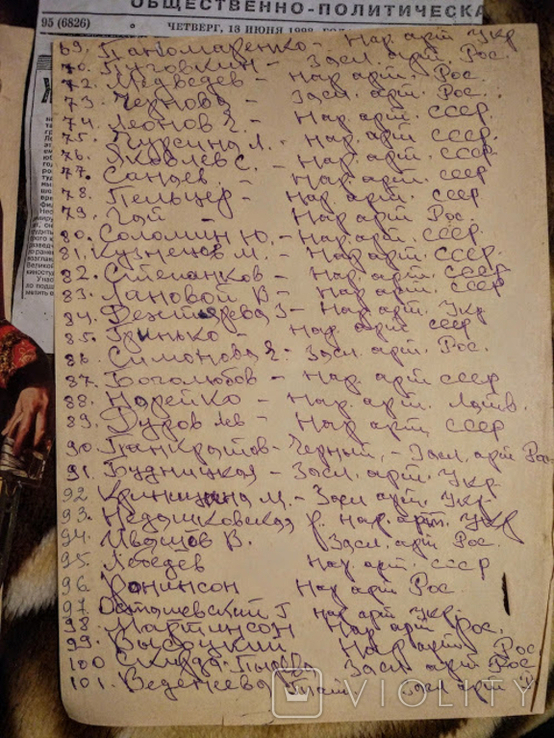 ОБЩЕСТВЕННО-ПОЛИТИЧЕСКА
95 (6826) ЧЕТВЕРГ, 18 ИЮНЯ 1998
69. Паномаренко - Нар. арт. Укр
70. Пуговкин - Засл. арт. Рос.
72. Медведев - Нар. арт. Рос.
73. Чернова - Засл. арт. Рос.
74. Леонов Е. - Нар. арт. СССР
75. Гурченко Л. - Нар. арт. СССР.
76. Яковлев С. - Нар. арт. СССР
77. Санаев. - Нар. арт. СССР
78. Пельцер - Нар. арт. СССР
79. - Нар. арт. Рос.
80. Соломин Ю. - Нар. арт. СССР.
81. Кузнецов М. - Нар. арт. СССР.
82. Степанков - Нар. арт. СССР
83. Лановой В - Нар. арт. СССР
84. Дехтярева З - Нар. арт. Укр
85. Гринько - Нар. арт СССР
86. Симонова Е - Засл. арт. Рос.
87. Боголюбов - Нар. арт СССР
88. Норейко - Нар. арт. Латв.
89. Дуров Лев - Нар. арт. СССР
90. Панкратов-Черный, - Засл. арт Рос
91. Будницкая - Засл. арт. Укр
92 Криницына М. - Засл арт. Укр.
93. Недашковская Р. Нар. арт. Укр
94. Ивашов В. Засл. арт Рос.
95. Лебедев Нар арт. СССР
96. Ронинсон Нар арт Рос
97. Осташевский Г Нар арт Укр.
98. Мартинсон Нар. арт Рос.
99. Высоцкий Нар арт. Рос
100 Засл арт Рос
101. Веденеева Засл арт Р
VIOLITY